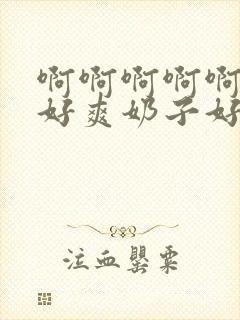 啊啊啊啊啊
好爽奶子好
泣血罂粟